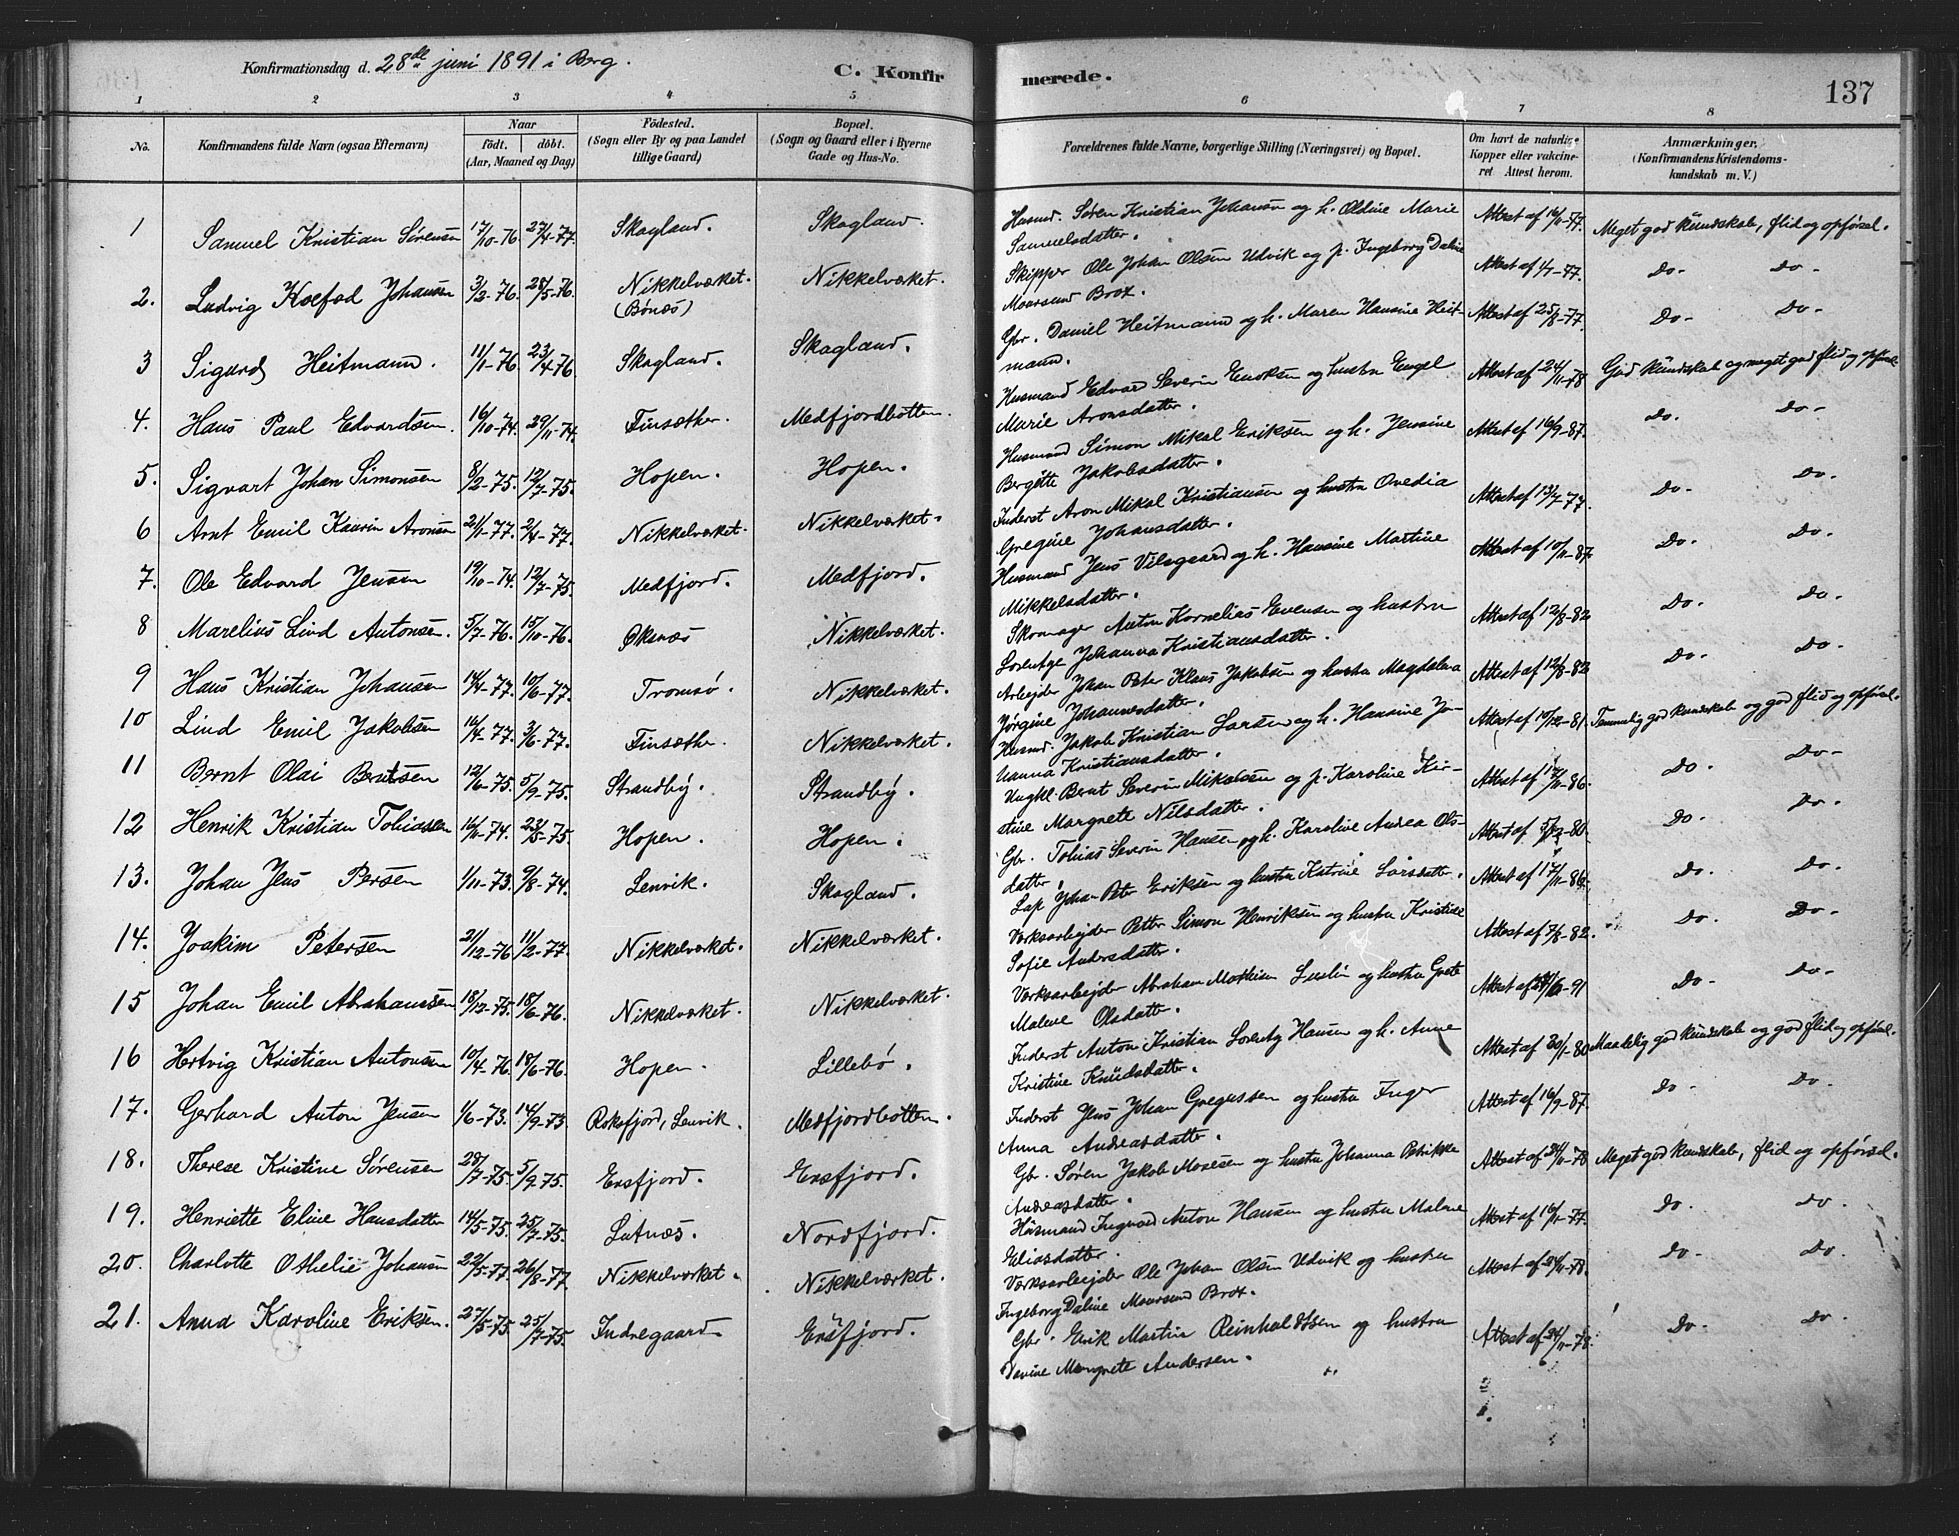 Konfirmationsdag d. 28de juni 1891 i Berg.
C. Konfirmerede.
137
1 2 3 4 5 6 7 8
No.
Konfirmandens fulde Navn (ogsaa Efternavn)
Naar
födt. döbt.
(Aar, Maaned og Dag)
Födested.
(Sogn eller By og paa Landet tillige Gaard)
Bopæl.
(Sogn og Gaard eller i Byerne Gade og Hus-No.
Forældrenes fulde Navne, borgerlige Stilling (Næringsvei) og Bopæl.
Om havt de naturlige Kopper eller vakcineret Attest herom.
Anmærkninger.
(Konfirmandens Kristendomskundskab m. V.)
1 Samuel Kristian Sørensen 17/10-76. 27/4-77. Skagland. Skagland. Husmd. Søren Kristian Johansen og h. Oldine Marie Samuelsdatter. Attest af 16/11-77. Meget god kundskab, flid og opførsel.
2. Ludvig Koefod Johansen 3/2-76. 28/5-76. Nikkelværket. (Bønæs) Nikkelværket. Skipper Ole Johan Olsen Udvik og p. Ingeborg Daline Maursund Brox. Attest af 4/7-77. Do- Do-
3 Sigurd Heitmann. 11/1-76. 23/4-76 Skagland. Skagland. Gbr. Daniel Heitmann og h. Maren Hansine Heitmann. Attest af 25/8-77. Do- Do-
4. Hans Paul Edvardsen. 16/10-74. 29/11-74. Finsæther. Medfjordbotten. Husmand Edvar Severin Enoksen og hustru Engel Marie Aronsdatter. Attest af 24/11-78 God kundskab og meget god flid og opførsel.
5. Sigvart Johan Simonsen 8/2-75. 12/7-75. Hopen. Hopen. Husmand Simon Mikal Eriksen og h. Jensine Bergitte Jakobsdatter. Attest af 16/9-87. Do. Do-
6 Arnt Emil Kaurin Aronsen 21/1-77. 2/4-77. Nikkelværket. Nikkelværket. Inderst Aron Mikal Kristiansen og hustru Ovedia Gregine Johansdatter. Attest af 13/7-77. Do- Do.
7. Ole Edvard Jensen 19/10-74. 12/7-75. Medfjord. Medfjord. Husmand Jens Vilsgaard og h. Hansine Martine Mikkelsdatter. Attest af 10/11-87. Do. Do.
8 Marelius Lind Antonsen. 5/7-76. 15/10-76. Øksnæs Nikkelværket. Skomager Anton Kornelius Evensen og hustru Lorentze Johanna Kristiansdatter. Attest af 12/8-82 Do. Do.
9 Hans Kristian Johansen 14/4-77. 10/6-77. Tromsø. Nikkelværket. Arbejder Johan Peter Klaus Jakobsen og hustru Magdalena Jørgine Johannesdatter. Attest af 12/8-82 Do. Do.
10 Lind Emil Jakobsen 14/4-77. 3/6-77. Finsæther. Nikkelværket. Husmd. Jakob Kristian Larsen og h. Hansine Johanna Kristiansdatter. Attest af 10/12-81. Temmelig god kundskab og god flid og opførsel.
11 Bernt Olai Berntsen 12/6-75. 5/9-75. Strandby. Strandby. Ungkl. Bernt Severin Mikalsen og p. Karoline Kirstine Margrete Nilsdatter. Attest af 17/11-86. Do. Do-
12 Henrik Kristian Tobiassen 16/11-74. 23/5-75. Hopen. Hopen. Gbr. Tobias Severin Hansen og h. Karoline Andrea Olsdatter. Attest af 5/12-80. Do. Do.
13. Johan Jens Persen 1/11-73. 9/8-74. Lenvik. Skagland. Lap Johan Peter Eriksen og hustru Katrine Larsdatter. Attest af 17/11-86. Do. Do.
14. Joakim Petersen 21/12-76 11/2-77. Nikkelværket. Nikkelværket. Værksarbejder Petter Simon Henriksen og hustru Kristine Sofie Andersdatter. Attest af 7/8-82. Do. Do-
15 Johan Emil Abrahamsen 18/12-75. 18/6-76. Nikkelværket. Nikkelværket. Værksarbejder Abraham Mathisen og hustru Grete Malene Olsdatter. Attest af 24/6-91 Do- Do-
16 Hertvig Kristian Antonsen 10/4-76. 18/6-76. Hopen. Lillebø. Inderst Anton Kristian Lorentz Hansen og h. Anne Kristine Knudsdatter. Attest af 20/1-80 Maadelig god kundskab og god flid og opførsel.
17. Gerhard Anton Jensen 1/6-73. 14/9-73. Roksfjord, Lenvik. Medfjordbotten. Inderst Jens Johan Gregussen og hustru Inger Anna Andreasdatter. Attest af 16/9-87. Do- Do.
18. Therese Kristine Sørensen 28/7-75. 5/9-75. Ersfjord. Ersfjord. Gbr. Søren Jakob Mosesen og hustru Johanna Petrikke Andreasdatter. Attest af 24/11-78 Meget god kundskab, flid og opførsel.
19. Henriette Eline Hansdatter 14/5-75. 25/7-75. Lutnæs. Nordfjord. Husmand Ingvard Anton Hansen og hustru Malene Eliasdatter. Attest af 16/11-77. Do. Do.
20. Charlotte Othelie Johansen 22/5-77. 26/8-77. Nikkelværket. Nikkelværket. Værksarbejder Ole Johan Olsen Udvik og hustru Ingeborg Daline Maursund Brox. Attest af 24/11-78. Do- Do.
21. Anna Karoline Eriksen. 27/5-75. 25/7-75. Indregaard. Ersfjord. Gbr. Erik Martin Reinholdtsen og hustru Davine Margrete Andersen. Attest af 24/11-78. Do. Do.